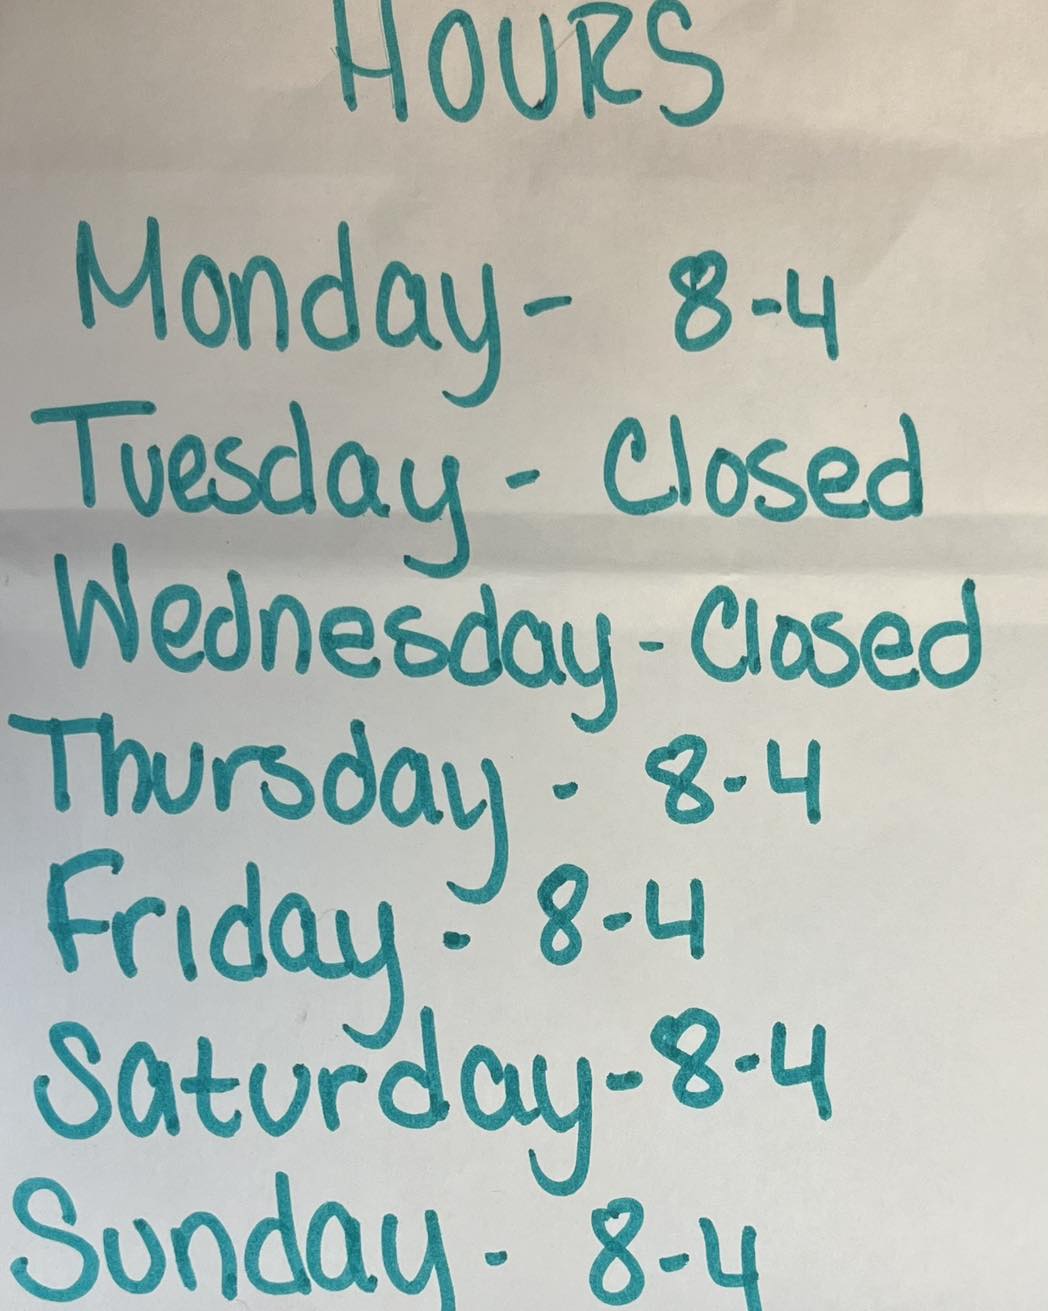 HOURS
Monday- 8-4
Tuesday - Closed
Wednesday - Closed
Thursday - 8-4
Friday - 8-4
Saturday - 8-4
Sunday - 8-4